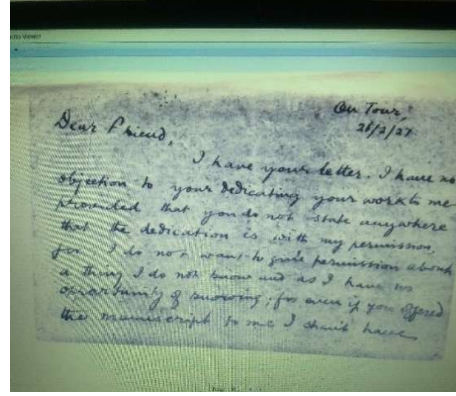 On Tour,
26/2/27
Dear Friend,
I have your letter. I have no
objection to your dedicating your work to me
provided that you do not state anywhere
that the dedication is with my permission,
for I do not want to give permission about
a thing I do not know and as I have no
opportunity of knowing; for even if you offered
the manuscript to me I shan't have